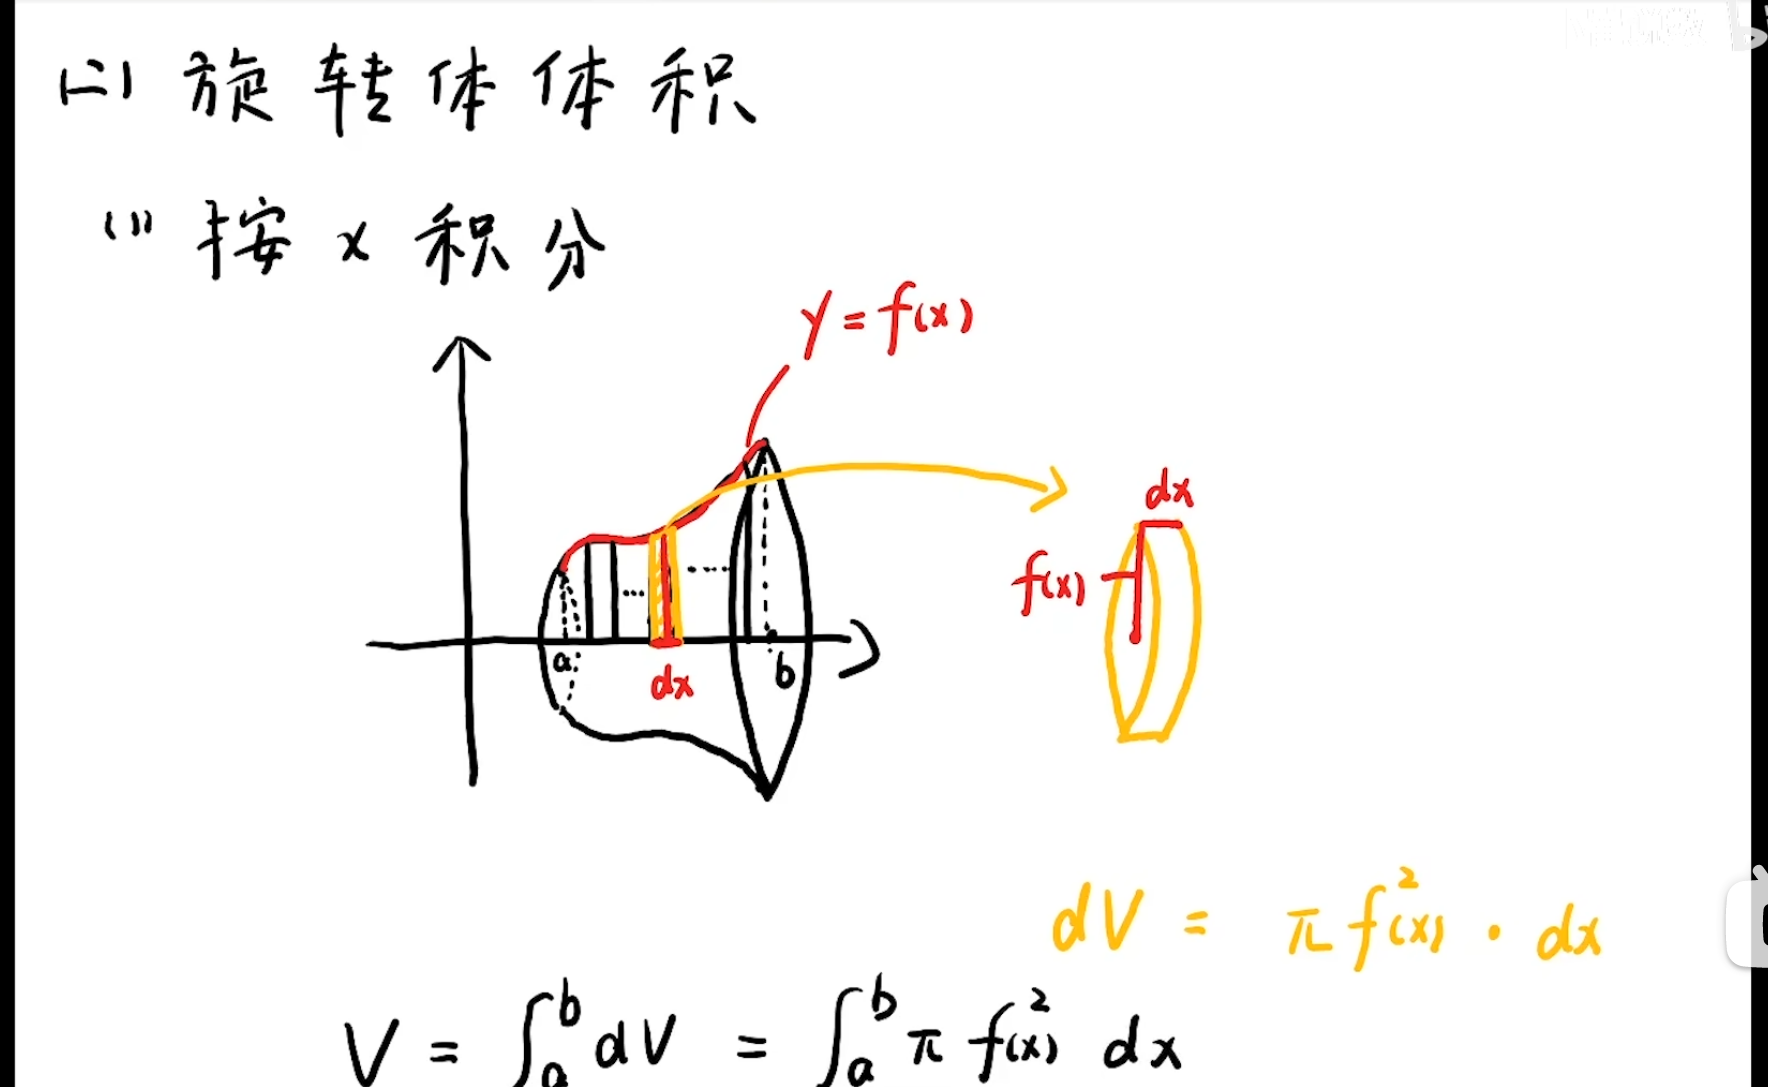 (二) 旋转体体积
(1) 按 x 积分
y = f(x)
dx
f(x)
... ....
a
b
dx
dV = π f²(x) · dx
V = ∫ₐᵇ dV = ∫ₐᵇ π f²(x) dx